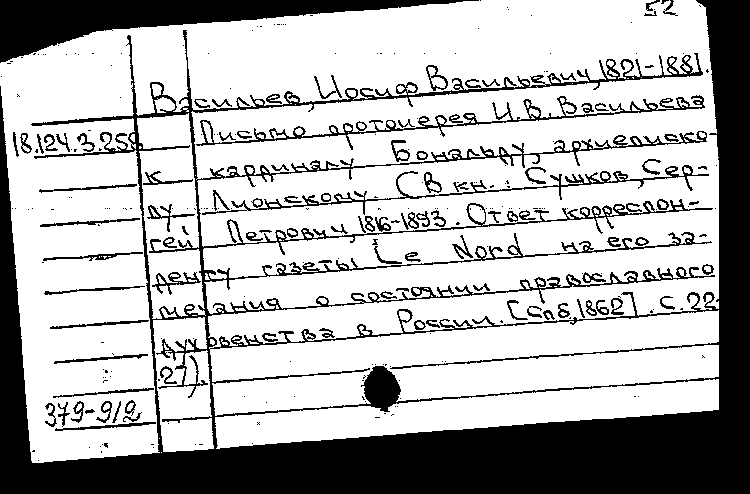 52
Васильев, Иосиф Васильевич, 1821-1881.
18.124.3.258 Письмо протоиерея И.В. Васильева
к кардиналу Бональду, архиеписко-
пу Лионскому (В кн.: Сушков, Сер-
гей Петрович, 1816-1893. Ответ корреспон-
денту газеты Le Nord на его за-
мечания о состоянии православного
духовенства в России. [Спб, 1862]. С. 22-
27).
379-9/2